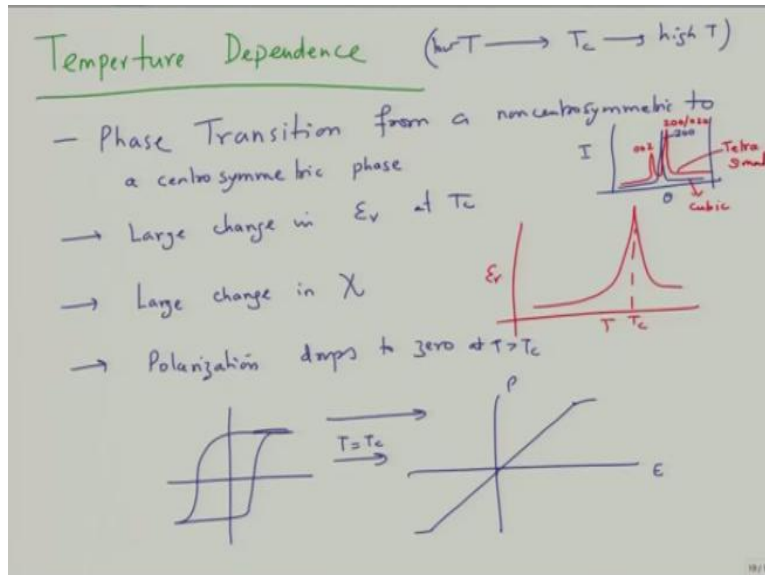 Temperture Dependence (low T → Tc → high T)
– Phase Transition from a noncentrosymmetric to
a centrosymmetric phase
→ Large change in εr at Tc
→ Large change in χ
→ Polarization drops to zero at T > Tc
I
002
200/020
200
Tetra
gonal
θ
cubic
εr
T Tc
T = Tc
P
ε